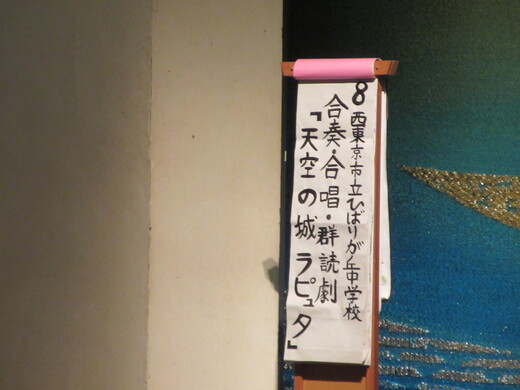 8 西東京市立ひばりが丘中学校
合奏・合唱・群読劇
『天空の城ラピュタ』